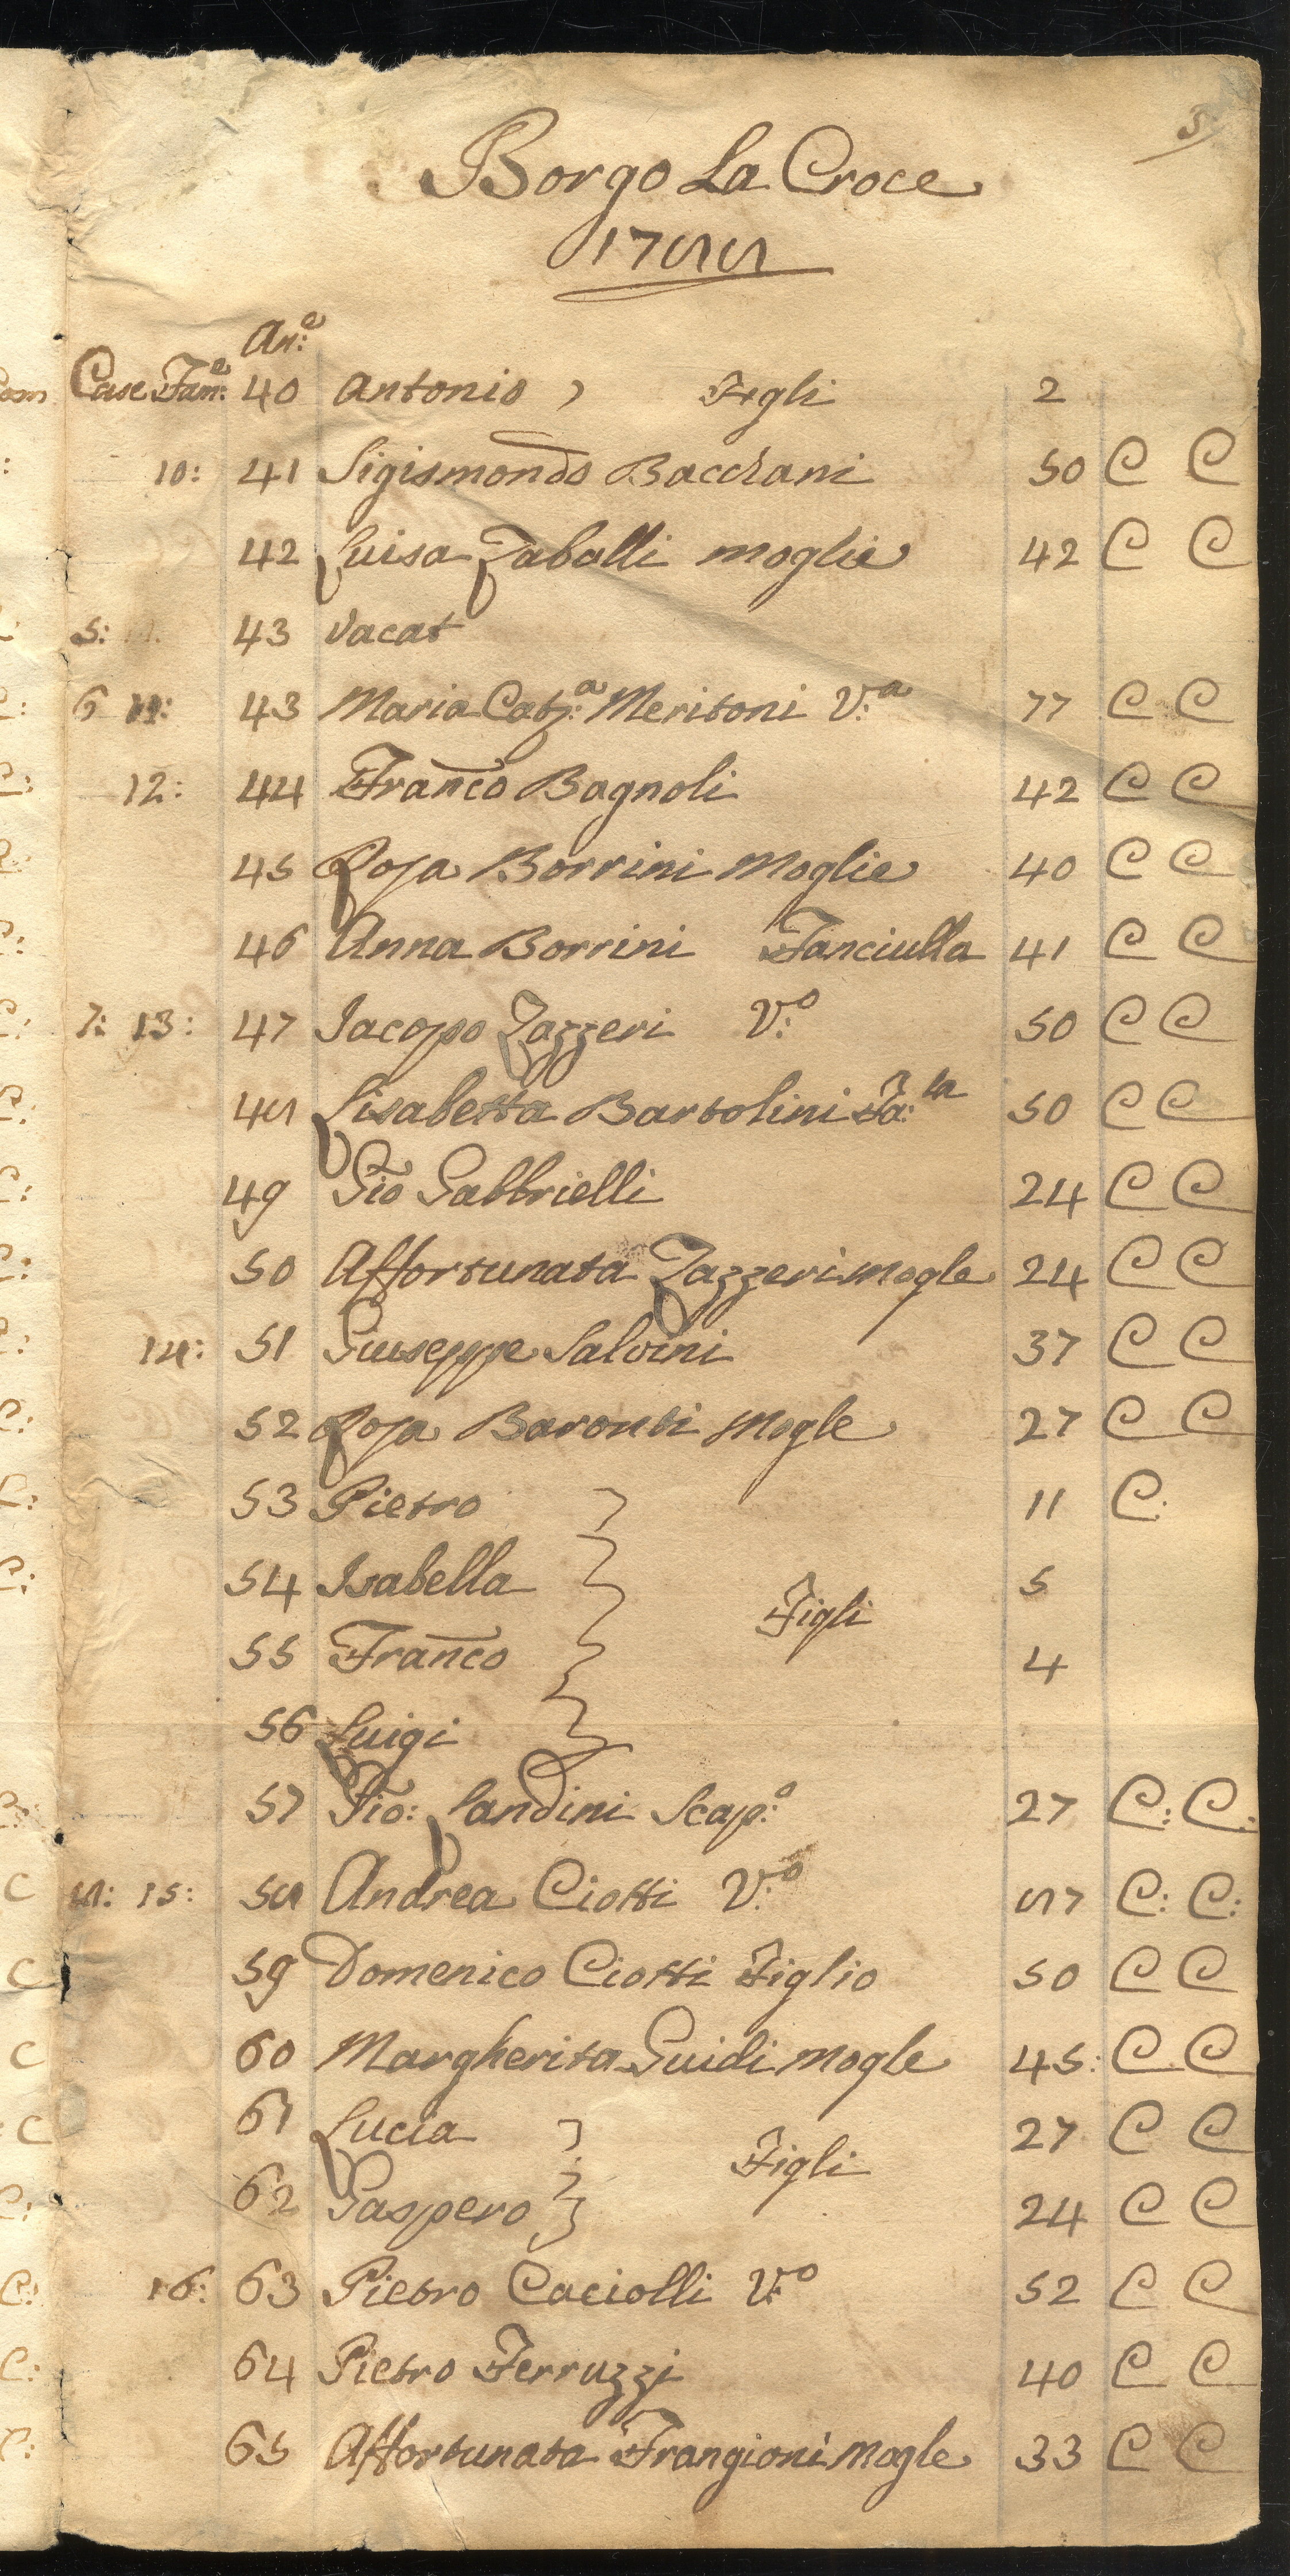 3
Borgo La Croce
1788
An:e
Case Fam:e 40 Antonio ) Figli 2
10: 41 Sigismondo Bacciani 50 C C
42 Luisa Zaballi moglie 42 C C
5: 43 Vacat
6 11: 43 Maria Cat:a Meritoni V:a 77 C C
12: 44 Franco Bagnoli 42 C C
45 Rosa Borrini Moglie 40 C C
46 Anna Borrini Fanciulla 41 C C
7: 13: 47 Jacopo Zazzeri V:o 50 C C
48 Lisabetta Bartolini Fa:la 50 C C
49 Gio Gabbrielli 24 C C
50 Affortunata Zazzeri mogle 24 C C
14: 51 Giuseppe Salvini 37 C C
52 Rosa Baronti Mogle 27 C C
53 Pietro } 11 C:
54 Isabella } 5
Figli
55 Franco } 4
56 Luigi }
57 Gio: Landini Scap:o 27 C: C:
8: 15: 58 Andrea Ciotti V:o 87 C: C:
59 Domenico Ciotti Figlio 50 C C
60 Margherita Guidi mogle 45: C C
61 Lucia } 27 C C
Figli
62 Gaspero } 24 C C
16: 63 Pietro Caciolli V:o 52 C C
64 Pietro Ferruzzi 40 C C
65 Affortunata Frangioni Mogle 33 C C